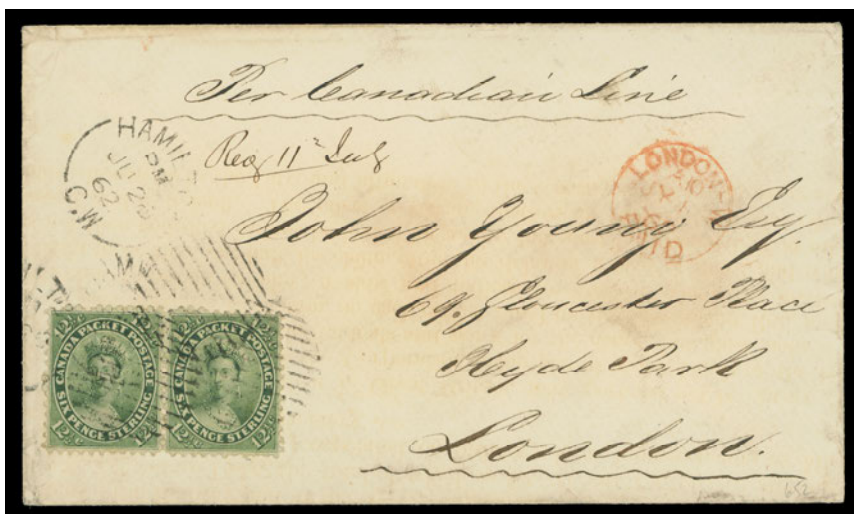 Per Canadian Line
HAMILTO
PM
62
C.W
Rec 11 July
LONDON
PAID
John Young Esq.
69. Gloucester Place
Hyde Park
London.
12½c
CANADA PACKET POSTAGE
SIX PENCE STERLING
12½c
12½c
CANADA PACKET POSTAGE
SIX PENCE STERLING
12½c
652